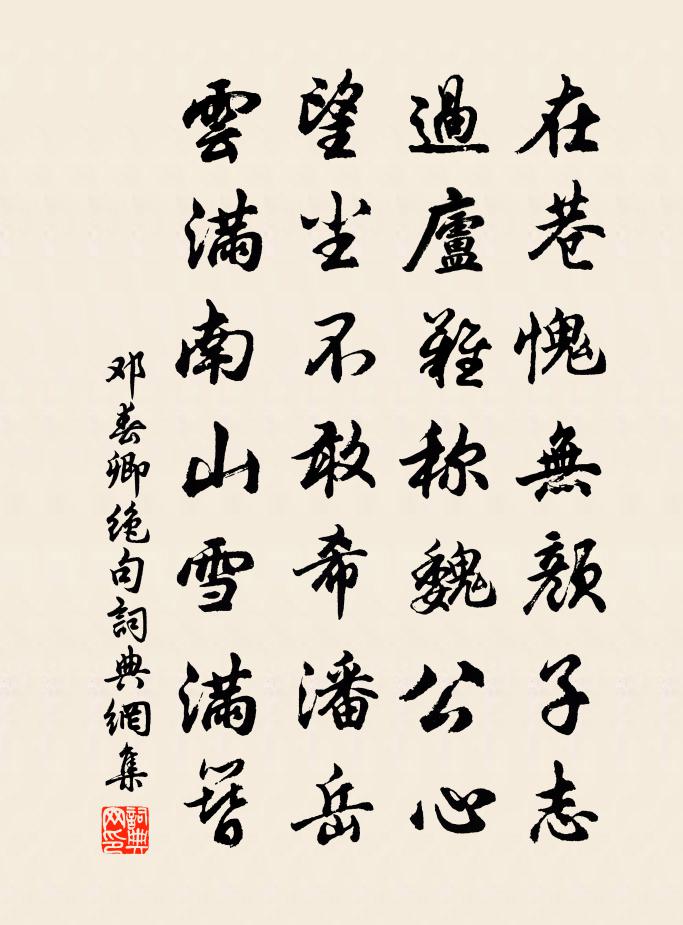 在巷愧無顏子志
過廬難称魏公心
望尘不敢希潘岳
雲滿南山雪滿簪
邓春卿绝句詞典網集
詞典
网印